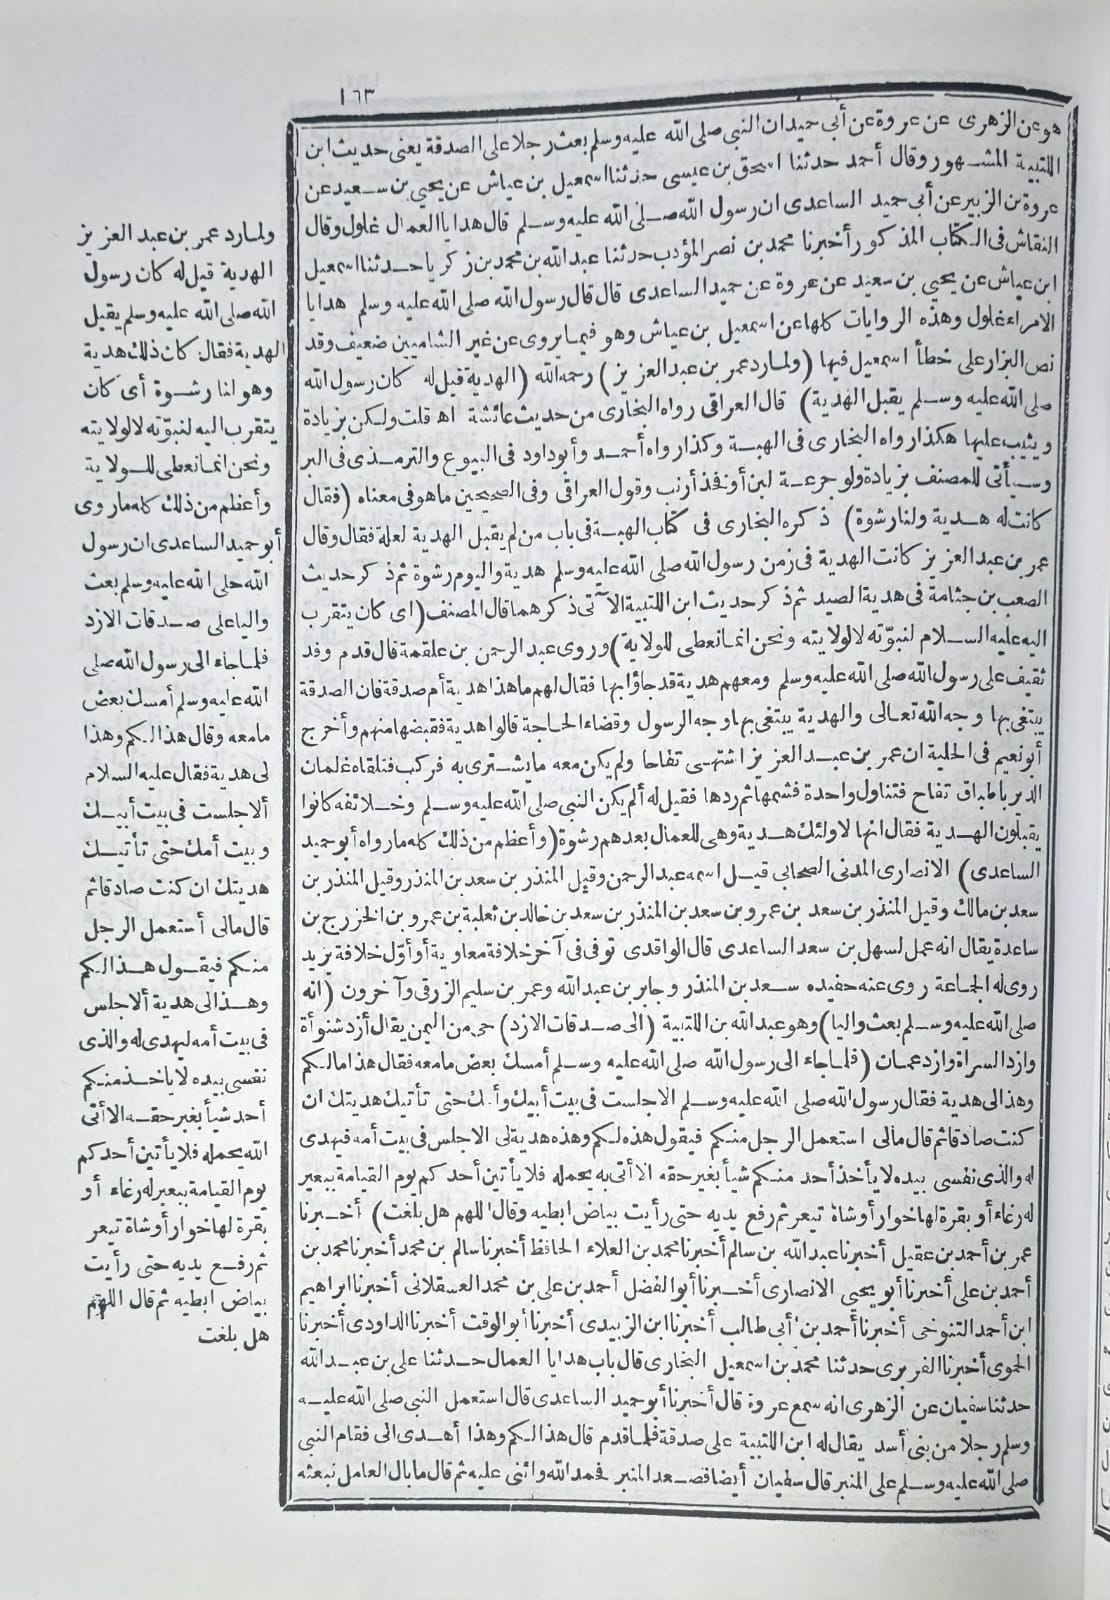 ١٦٣
هو عن الزهرى عن عروة عن أبى حميد ان النبى صلى الله عليه وسلم بعث رجلا على الصدقة يعنى حديث ابن
اللتبية المشهور وقال أحمد حدثنا اسحق بن عيسى حدثنا اسمعيل بن عياش عن يحيى بن سعيد عن
عروة بن الزبير عن أبى حميد الساعدى ان رسول الله صلى الله عليه وسلم قال هدايا العمال غلول وقال
النقاش فى الكتاب المذكور أخبرنا محمد بن نصر المؤدب حدثنا عبد الله بن محمد بن زكريا حدثنا اسمعيل
ابن عياش عن يحيى بن سعيد عن عروة عن حميد الساعدى قال قال رسول الله صلى الله عليه وسلم هدايا
الامراء غلول وهذه الروايات كلها عن اسمعيل بن عياش وهو فيما يروى عن غير الشاميين ضعيف وقد
نص البزار على خطأ اسمعيل فيها (ولما رد عمر بن عبد العزيز) رحمه الله (الهدية قيل له كان رسول الله
صلى الله عليه وسلم يقبل الهدية) قال العراقى رواه البخارى من حديث عائشة اهـ قلت ولكن بزيادة
ويثيب عليها هكذا رواه البخارى فى الهبة وكذا رواه أحمد وأبو داود فى البيوع والترمذى فى البر
وسيأتى للمصنف بزيادة ولو جرعة لبن أو فخذ أرنب وقول العراقى وفى الصحيحين ما هو فى معناه (فقال
كانت له هدية ولنا رشوة) ذكره البخارى فى كتاب الهبة فى باب من لم يقبل الهدية لعلة فقال وقال
عمر بن عبد العزيز كانت الهدية فى زمن رسول الله صلى الله عليه وسلم هدية واليوم رشوة ثم ذكر حديث
الصعب بن جثامة فى هدية الصيد ثم ذكر حديث ابن اللتبية الآتى ذكرهما قال المصنف (اى كان يتقرب
اليه عليه السلام لنبوّته لا لولايته ونحن انما نعطى للولاية) وروى عبد الرحمن بن علقمة قال قدم وفد
ثقيف على رسول الله صلى الله عليه وسلم ومعهم هدية قد جاؤا بها فقال لهم ما هذا هدية أم صدقة فان الصدقة
يبتغى بها وجه الله تعالى والهدية يبتغى بها وجه الرسول وقضاء الحاجة قالوا هدية فقبضها منهم وأخرج
أبو نعيم فى الحلية ان عمر بن عبد العزيز اشتهى تفاحا ولم يكن معه ما يشترى به فركب فتلقاه غلمان
الدير باطباق تفاح فتناول واحدة فشمها ثم ردها فقيل له ألم يكن النبى صلى الله عليه وسلم وخلائفه كانوا
يقبلون الهدية فقال انها لاولئك هدية وهى للعمال بعدهم رشوة (وأعظم من ذلك كله ما رواه أبو حميد
الساعدى) الانصارى المدنى الصحابى قيل اسمه عبد الرحمن وقيل المنذر بن سعد بن المنذر وقيل المنذر بن
سعد بن مالك وقيل المنذر بن سعد بن عمرو بن سعد بن المنذر بن سعد بن خالد بن ثعلبة بن عمرو بن الخزرج بن
ساعدة يقال انه عمل لسهل بن سعد الساعدى قال الواقدى توفى فى آخر خلافة معاوية أو أوّل خلافة يزيد
روى له الجماعة روى عنه حفيده سعد بن المنذر وجابر بن عبد الله وعمر بن سليم الزرقى وآخرون (انه
صلى الله عليه وسلم بعث واليا) وهو عبد الله بن اللتبية (الى صدقات الازد) حى من اليمن يقال أزد شنوأة
وازد السراة وازد عمان (فلما جاء الى رسول الله صلى الله عليه وسلم أمسك بعض ما معه فقال هذا مالكم
وهذا لى هدية فقال رسول الله صلى الله عليه وسلم الاجلست فى بيت أبيك وأمك حتى تأتيك هديتك ان
كنت صادقا ثم قال مالى استعمل الرجل منكم فيقول هذه لكم وهذه هدية لى الاجلس فى بيت أمه فيهدى
له والذى نفسى بيده لا يأخذ أحد منكم شيأ بغير حقه الا أتى به يحمله فلا يأتين أحدكم يوم القيامة ببعير
له رغاء أو بقرة لها خوار أو شاة تيعر ثم رفع يديه حتى رأيت بياض ابطيه وقال اللهم هل بلغت) أخبرنا
عمر بن أحمد بن عقيل أخبرنا عبد الله بن سالم أخبرنا محمد بن العلاء الحافظ أخبرنا سالم بن محمد أخبرنا محمد بن
أحمد بن على أخبرنا أبو يحيى الانصارى أخبرنا أبو الفضل أحمد بن على بن محمد العسقلانى أخبرنا ابراهيم
ابن أحمد التنوخى أخبرنا أحمد بن أبى طالب أخبرنا ابن الزبيدى أخبرنا أبو الوقت أخبرنا الداودى أخبرنا
الحموى أخبرنا الفربرى حدثنا محمد بن اسمعيل البخارى قال باب هدايا العمال حدثنا على بن عبد الله
حدثنا سفيان عن الزهرى انه سمع عروة قال أخبرنا أبو حميد الساعدى قال استعمل النبى صلى الله عليه
وسلم رجلا من بنى أسد يقال له ابن اللتبية على صدقة فلما قدم قال هذا لكم وهذا أهدى الى فقام النبى
صلى الله عليه وسلم على المنبر قال سفيان أيضا فصعد المنبر فحمد الله واثنى عليه ثم قال ما بال العامل نبعثه
ولما رد عمر بن عبد العزيز
الهدية قيل له كان رسول
الله صلى الله عليه وسلم يقبل
الهدية فقال كان ذلك هدية
وهو لنا رشوة أى كان
يتقرب اليه لنبوّته لا لولايته
ونحن انما نعطى للولاية
وأعظم من ذلك كله ما روى
أبو حميد الساعدى ان رسول
الله صلى الله عليه وسلم بعث
واليا على صدقات الازد
فلما جاء الى رسول الله صلى
الله عليه وسلم أمسك بعض
ما معه وقال هذا لكم وهذا
لى هدية فقال عليه السلام
ألا جلست فى بيت أبيك
وبيت أمك حتى تأتيك
هديتك ان كنت صادقا ثم
قال مالى أستعمل الرجل
منكم فيقول هذا لكم
وهذا لى هدية ألا جلس
فى بيت أمه ليهدى له والذى
نفسى بيده لا يأخذ منكم
أحد شيأ بغير حقه الا أتى
الله يحمله فلا يأتين أحدكم
يوم القيامة ببعير له رغاء أو
بقرة لها خوار أو شاة تيعر
ثم رفع يديه حتى رأيت
بياض ابطيه ثم قال اللهم
هل بلغت